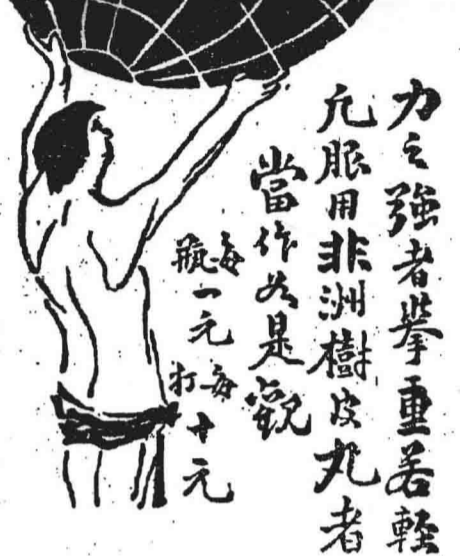 力之強者擧重若輕
凡服用非洲樹皮丸者
當作如是觀
每瓶一元
每打十元